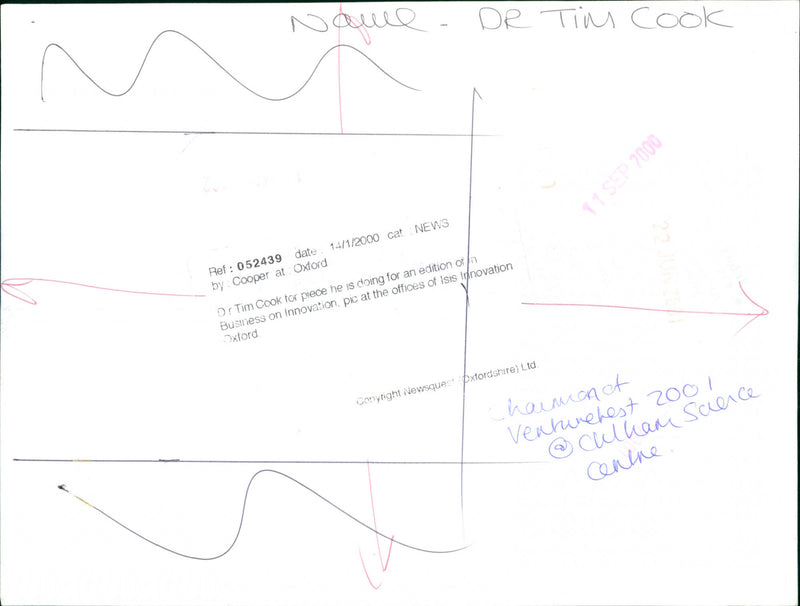 Name - DR TIM COOK
11 SEP 2000
Ref : 052439 date : 14/1/2000 cat : NEWS
by : Cooper at : Oxford
Dr Tim Cook for piece he is doing for an edition of In
Business on Innovation, pic at the offices of Isis Innovation
Oxford
Copyright Newsquest (Oxfordshire) Ltd.
Chairman of
Venturefest 2001
@ Culham Science
Centre.